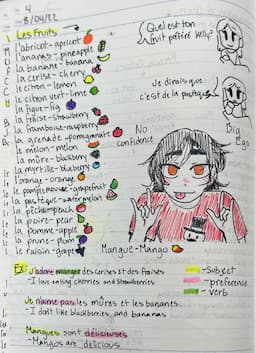 4
8/04/22
Les Fruits
l'abricot - apricot
l'ananas - pineapple
la banane - banana
la cerise - cherry
le citron - lemon
le citron vert - lime
la figue - fig
la fraise - strawberry
la framboise - raspberry
la grenade - pomegranate
le melon - melon
la mûre - blackberry
la myrtille - blueberry
l'orange - orange
le pamplemousse - grapefruit
la pastèque - watermelon
la pêche - peach
la poire - pear
la pomme - apple
la prune - plum
le raisin - grape
Quel est ton
fruit préféré Kelly?
Je dirais que
c'est de la pastèque
No
confidence
Big
Ego
Mangue - Mango
Ex:
J'adore manger des cerises et des fraises
- I love eating cherries and strawberries
Je n'aime pas les mûres et les bananes.
- I don't like blackberries and bananas
Mangues sont délicieuses
- Mangos are delicious
- Subject
- preference
- verb